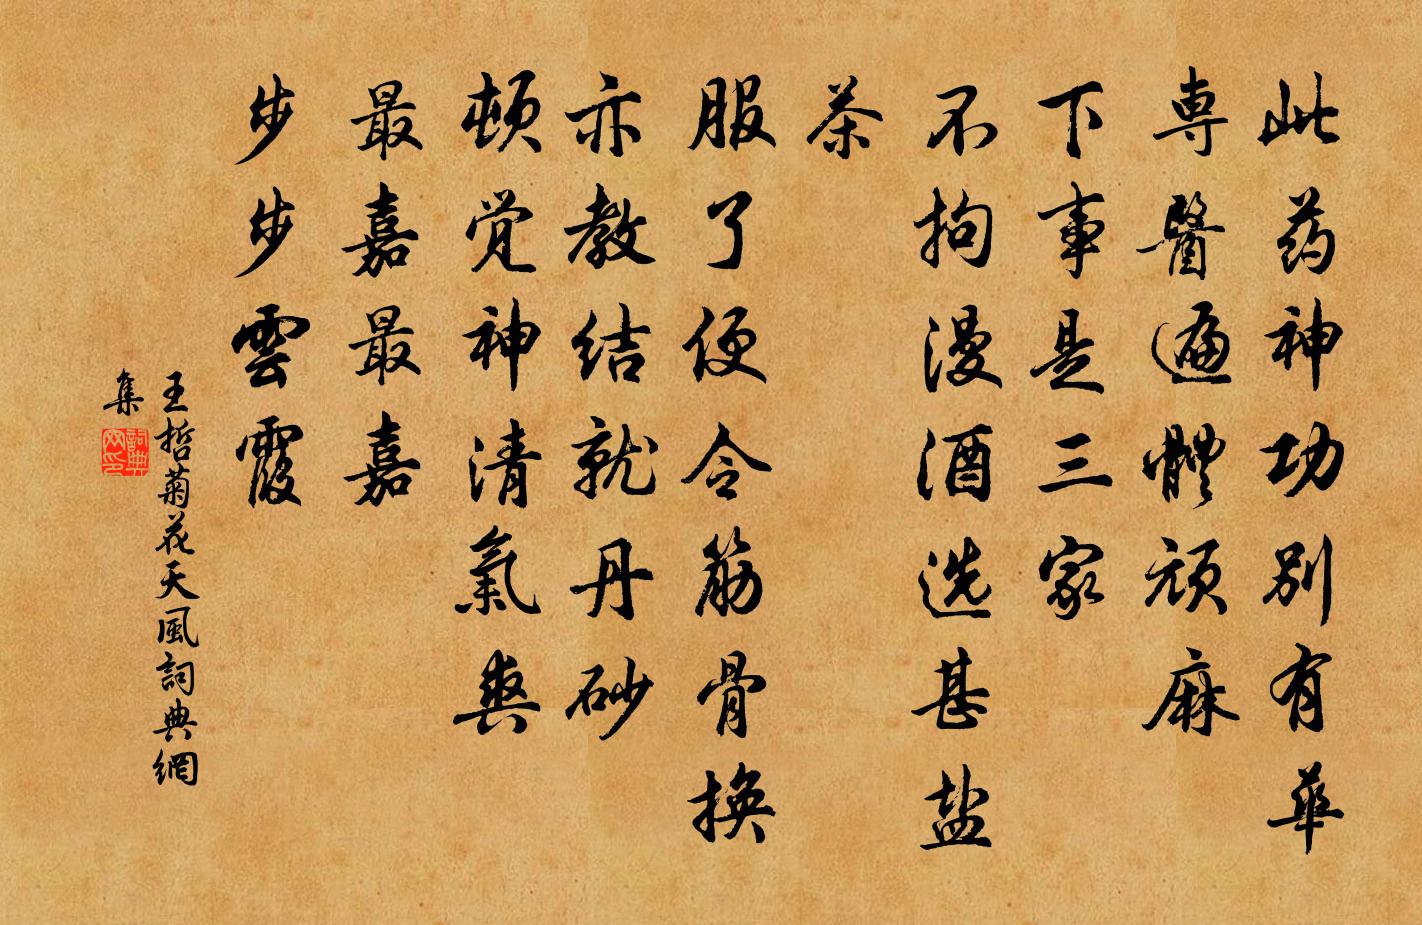 此药神功别有華
専醫遍體頑麻
下事是三家
不拘漫酒选甚盐
茶
服了便令筋骨换
亦教结就丹砂
頓觉神清氣爽
最嘉最嘉
步步雲霞
王哲菊花天風詞典網
集
詞典
网印